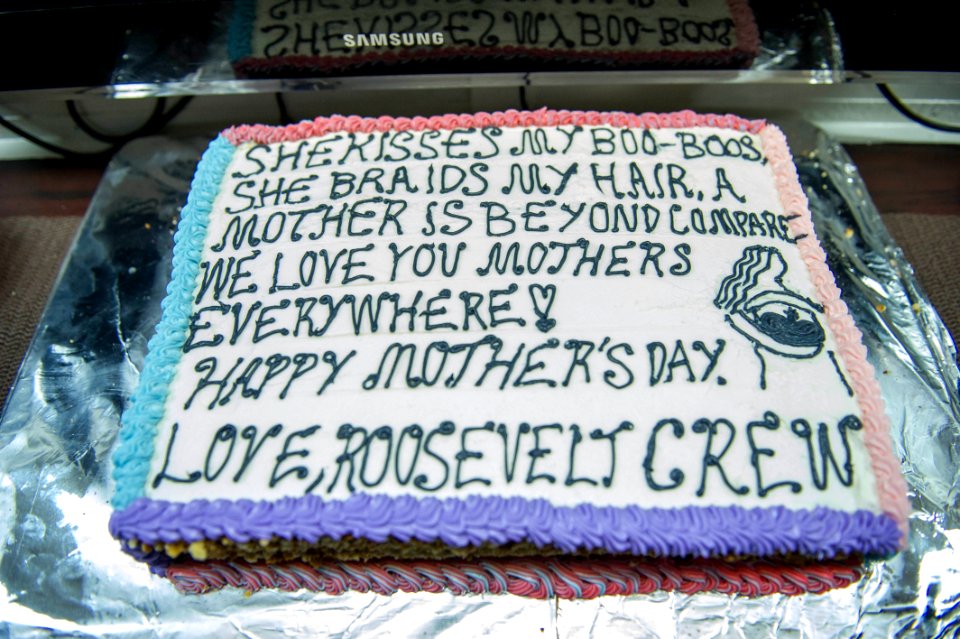 SHE KISSES MY BOO-BOOS
SAMSUNG
SHE KISSES MY BOO-BOOS,
SHE BRAIDS MY HAIR, A
MOTHER IS BEYOND COMPARE
WE LOVE YOU MOTHERS
EVERYWHERE!
HAPPY MOTHER'S DAY.
LOVE, ROOSEVELT CREW